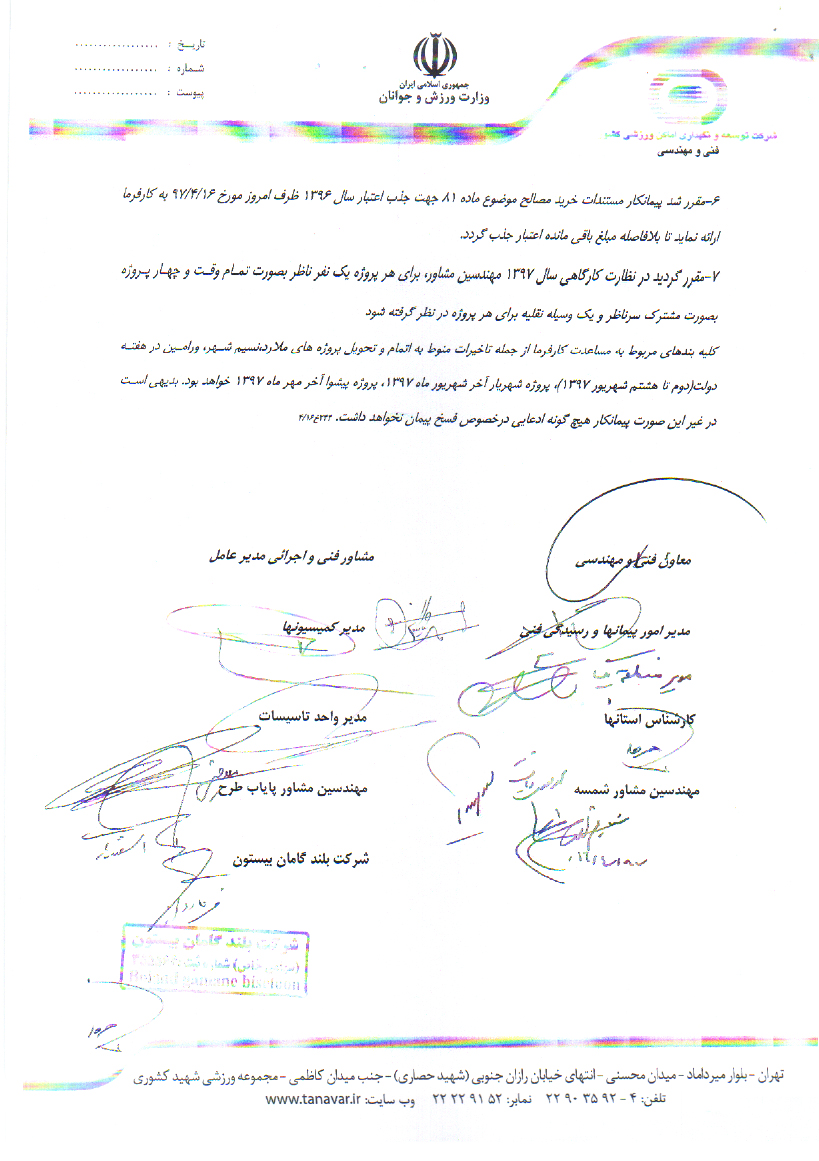 تاریخ : ..................
شماره : ..................
پیوست : ..................
جمهوری اسلامی ایران
وزارت ورزش و جوانان
شرکت توسعه و نگهداری اماکن ورزشی کشور
فنی و مهندسی
۶-مقرر شد پیمانکار مستندات خرید مصالح موضوع ماده ۸۱ جهت جذب اعتبار سال ۱۳۹۶ ظرف امروز مورخ ۹۷/۴/۱۶ به کارفرما
ارائه نماید تا بلافاصله مبلغ باقی مانده اعتبار جذب گردد.
۷-مقرر گردید در نظارت کارگاهی سال ۱۳۹۷ مهندسین مشاور، برای هر پروژه یک نفر ناظر بصورت تمام وقت و چهار پروژه
بصورت مشترک سرناظر و یک وسیله نقلیه برای هر پروژه در نظر گرفته شود
کلیه بندهای مربوط به مساعدت کارفرما از جمله تاخیرات منوط به اتمام و تحویل پروژه های ملارد،نسیم شهر، ورامین در هفته
دولت(دوم تا هشتم شهریور ۱۳۹۷)، پروژه شهریار آخر شهریور ماه ۱۳۹۷، پروژه پیشوا آخر مهر ماه ۱۳۹۷ خواهد بود. بدیهی است
در غیر این صورت پیمانکار هیچ گونه ادعایی درخصوص فسخ پیمان نخواهد داشت.
معاون فنی و مهندسی
مشاور فنی و اجرائی مدیر عامل
مدیر امور پیمانها و رسیدگی فنی
مدیر کمیسیونها
مدیر منطقه یک
کارشناس استانها
مدیر واحد تاسیسات
مهندسین مشاور شمسه
مهندسین مشاور پایاب طرح
شرکت بلند گامان بیستون
شرکت بلند گامان بیستون
تهران - بلوار میرداماد - میدان محسنی - انتهای خیابان رازان جنوبی (شهید حصاری) - جنب میدان کاظمی - مجموعه ورزشی شهید کشوری
تلفن: ۴ - ۹۲ ۳۵ ۹۰ ۲۲ نمابر: ۵۲ ۹۱ ۲۲ ۲۲ وب سایت: www.tanavar.ir